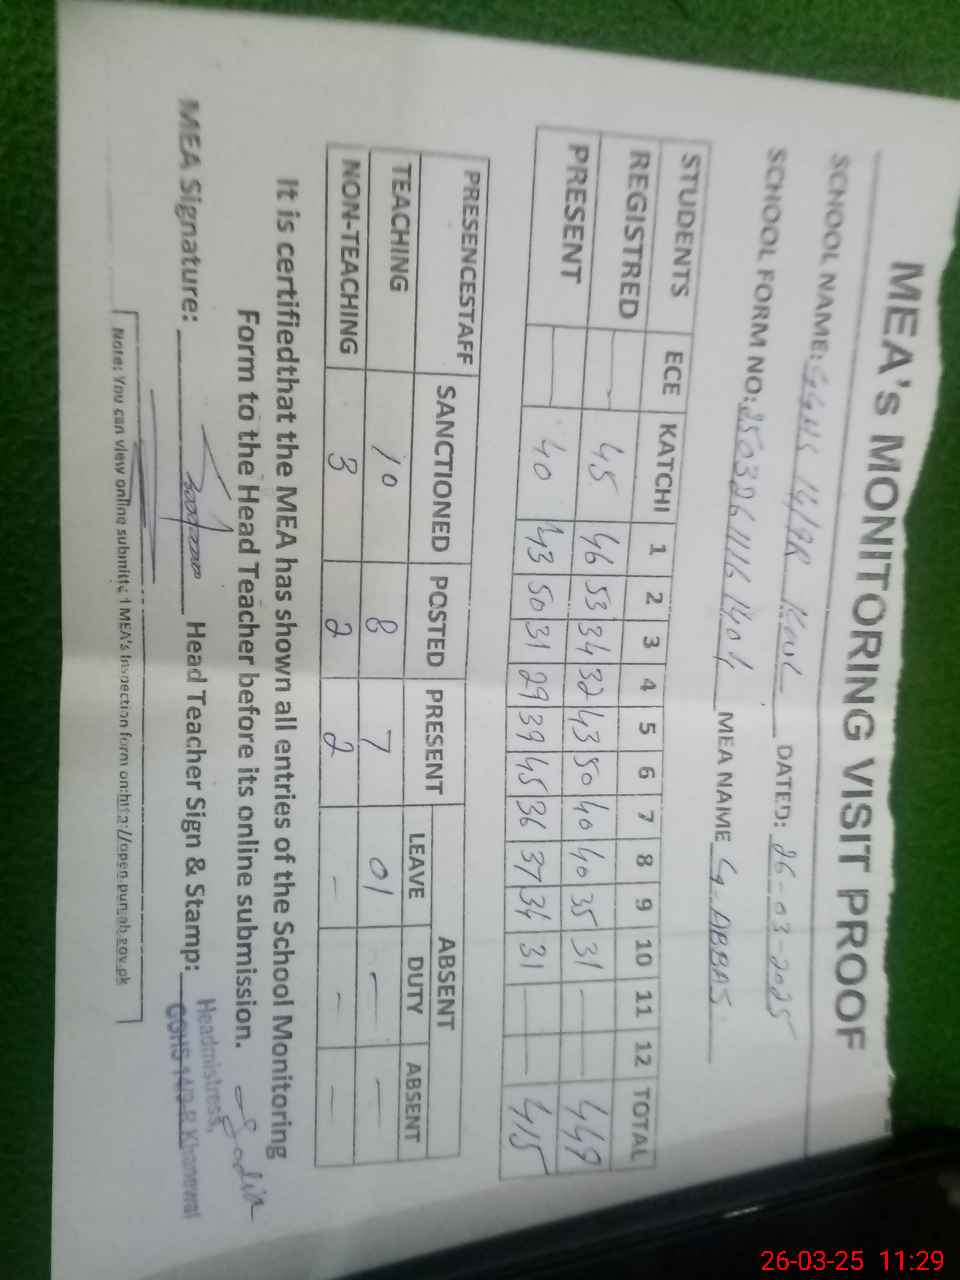 MEA's MONITORING VISIT PROOF
SCHOOL NAME: GGHS 14/9R Kwl DATED: 26-03-2025
SCHOOL FORM NO: MEA NAME G. ABBAS
STUDENTS ECE KATCHI 1 2 3 4 5 6 7 8 9 10 11 12 TOTAL
REGISTRED — 45 46 53 34 32 43 50 40 40 35 31 — — 449
PRESENT — 40 43 50 31 29 39 45 36 37 34 31 — — 415
PRESENCESTAFF SANCTIONED POSTED PRESENT ABSENT
LEAVE DUTY ABSENT
TEACHING 10 8 7 01 — —
NON-TEACHING 3 2 2 — — —
It is certifiedthat the MEA has shown all entries of the School Monitoring
Form to the Head Teacher before its online submission.
Sadia
MEA Signature: Head Teacher Sign & Stamp:
Headmistress,
GGHS 14/9-R Khanewal
Note: You can view online submitted MEA's Inspection form on:http://open.punjab.gov.pk
26-03-25 11:29